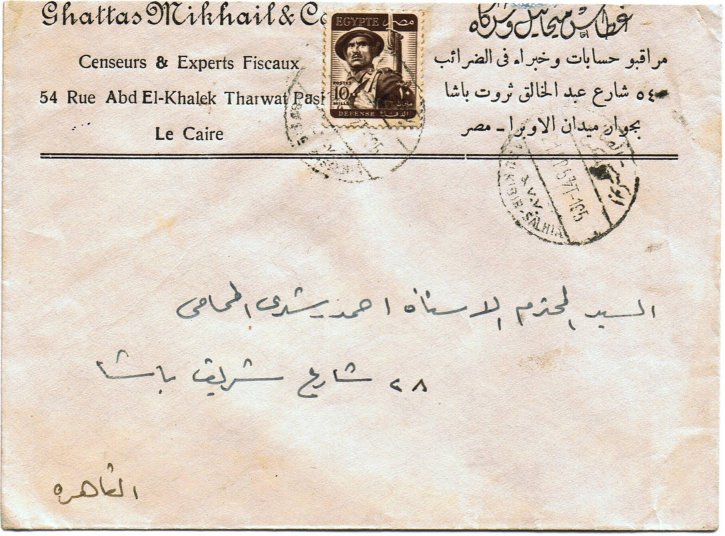 Ghattas Mikhail & Co
Censeurs & Experts Fiscaux
54 Rue Abd El-Khalek Tharwat Pas
Le Caire
EGYPTE مصر
POSTES
10
MILLS
DEFENSE
غطاس ميخائيل وشركاه
مراقبو حسابات وخبراء فى الضرائب
٥٤ شارع عبد الخالق ثروت باشا
بجوار ميدان الاوبرا - مصر
KIBIR-SALHIA
السيد المحترم الاستاذ احمد رشدى المحامى
٢٨ شارع شريف باشا
القاهره